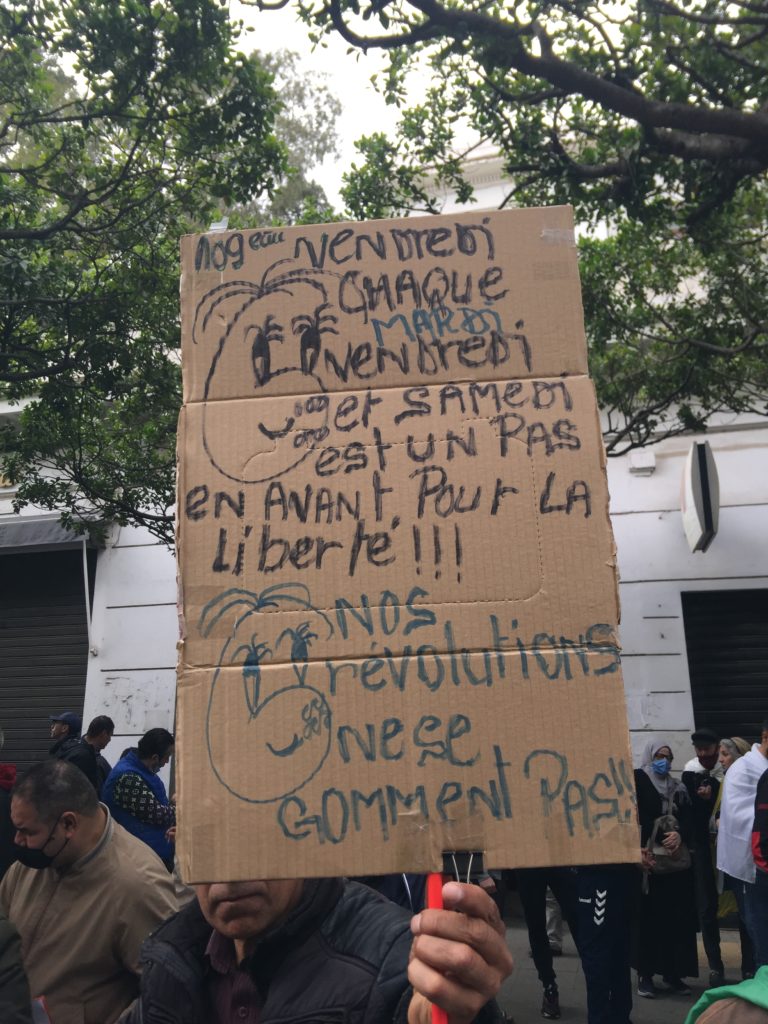 109eme vendredi
CHAQUE
MARDI
vendredi
et SAMEDi
est UN PAS
en AVANT Pour LA
Liberté!!!
NOS
révolutions
ne se
Gomment PAS!!